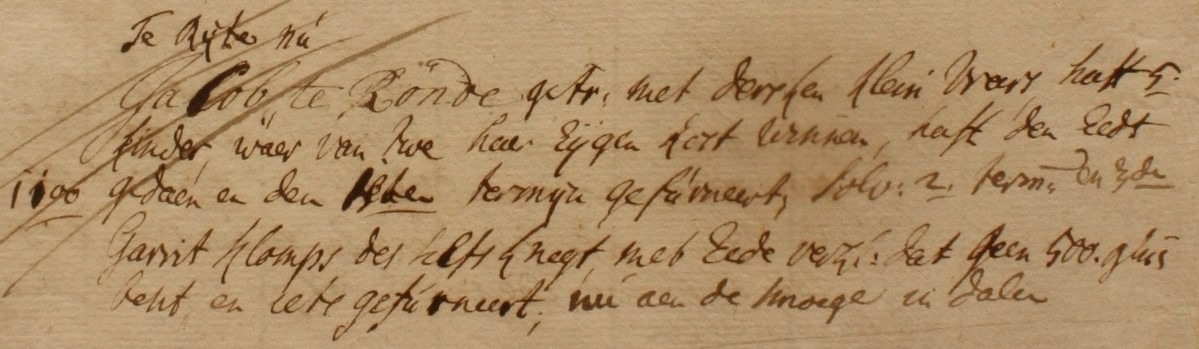 Te Rijte nú
Jacob te Rönde getr: met derschen klein Wars haft 5.
kinder, wäer van twe haer Eijgen kost winnen, haft den Eedt
1100 gedaén en den 1sten termijn gefúrneert, solv: 2. term: en 3den
Garrit Klomps des knegt, met Eede verkl: dat geen 500. glns
teht, en iets gefúrneert, nú aen de in dalen